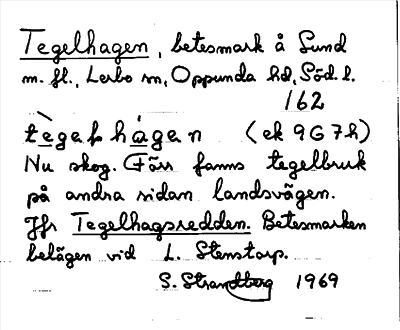 Tegelhagen, betesmark å Sund
m. fl., Lerbo sn, Oppunda hd, Söd. l.
162
tègəlhágen (ek 9G7h)
Nu skog. Förr fanns tegelbruk
på andra sidan landsvägen.
Jfr Tegelhagsredden. Betesmarken
belägen vid L. Stenstorp.
S. Strandberg 1969